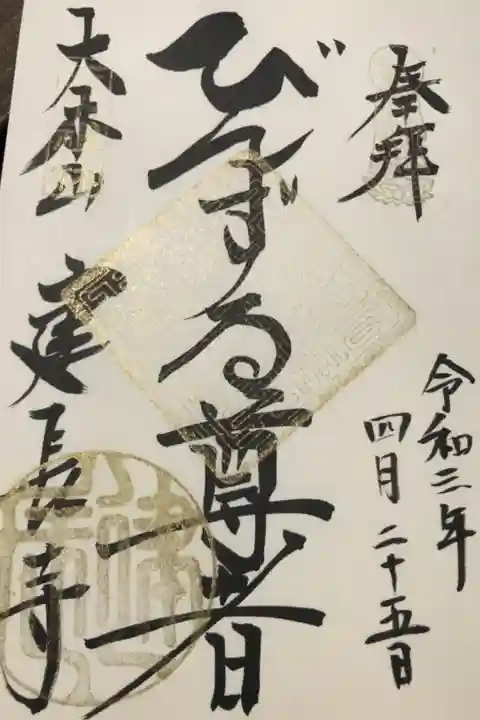 奉拝
令和三年
四月二十五日
びんずる尊者
大本山 建長寺